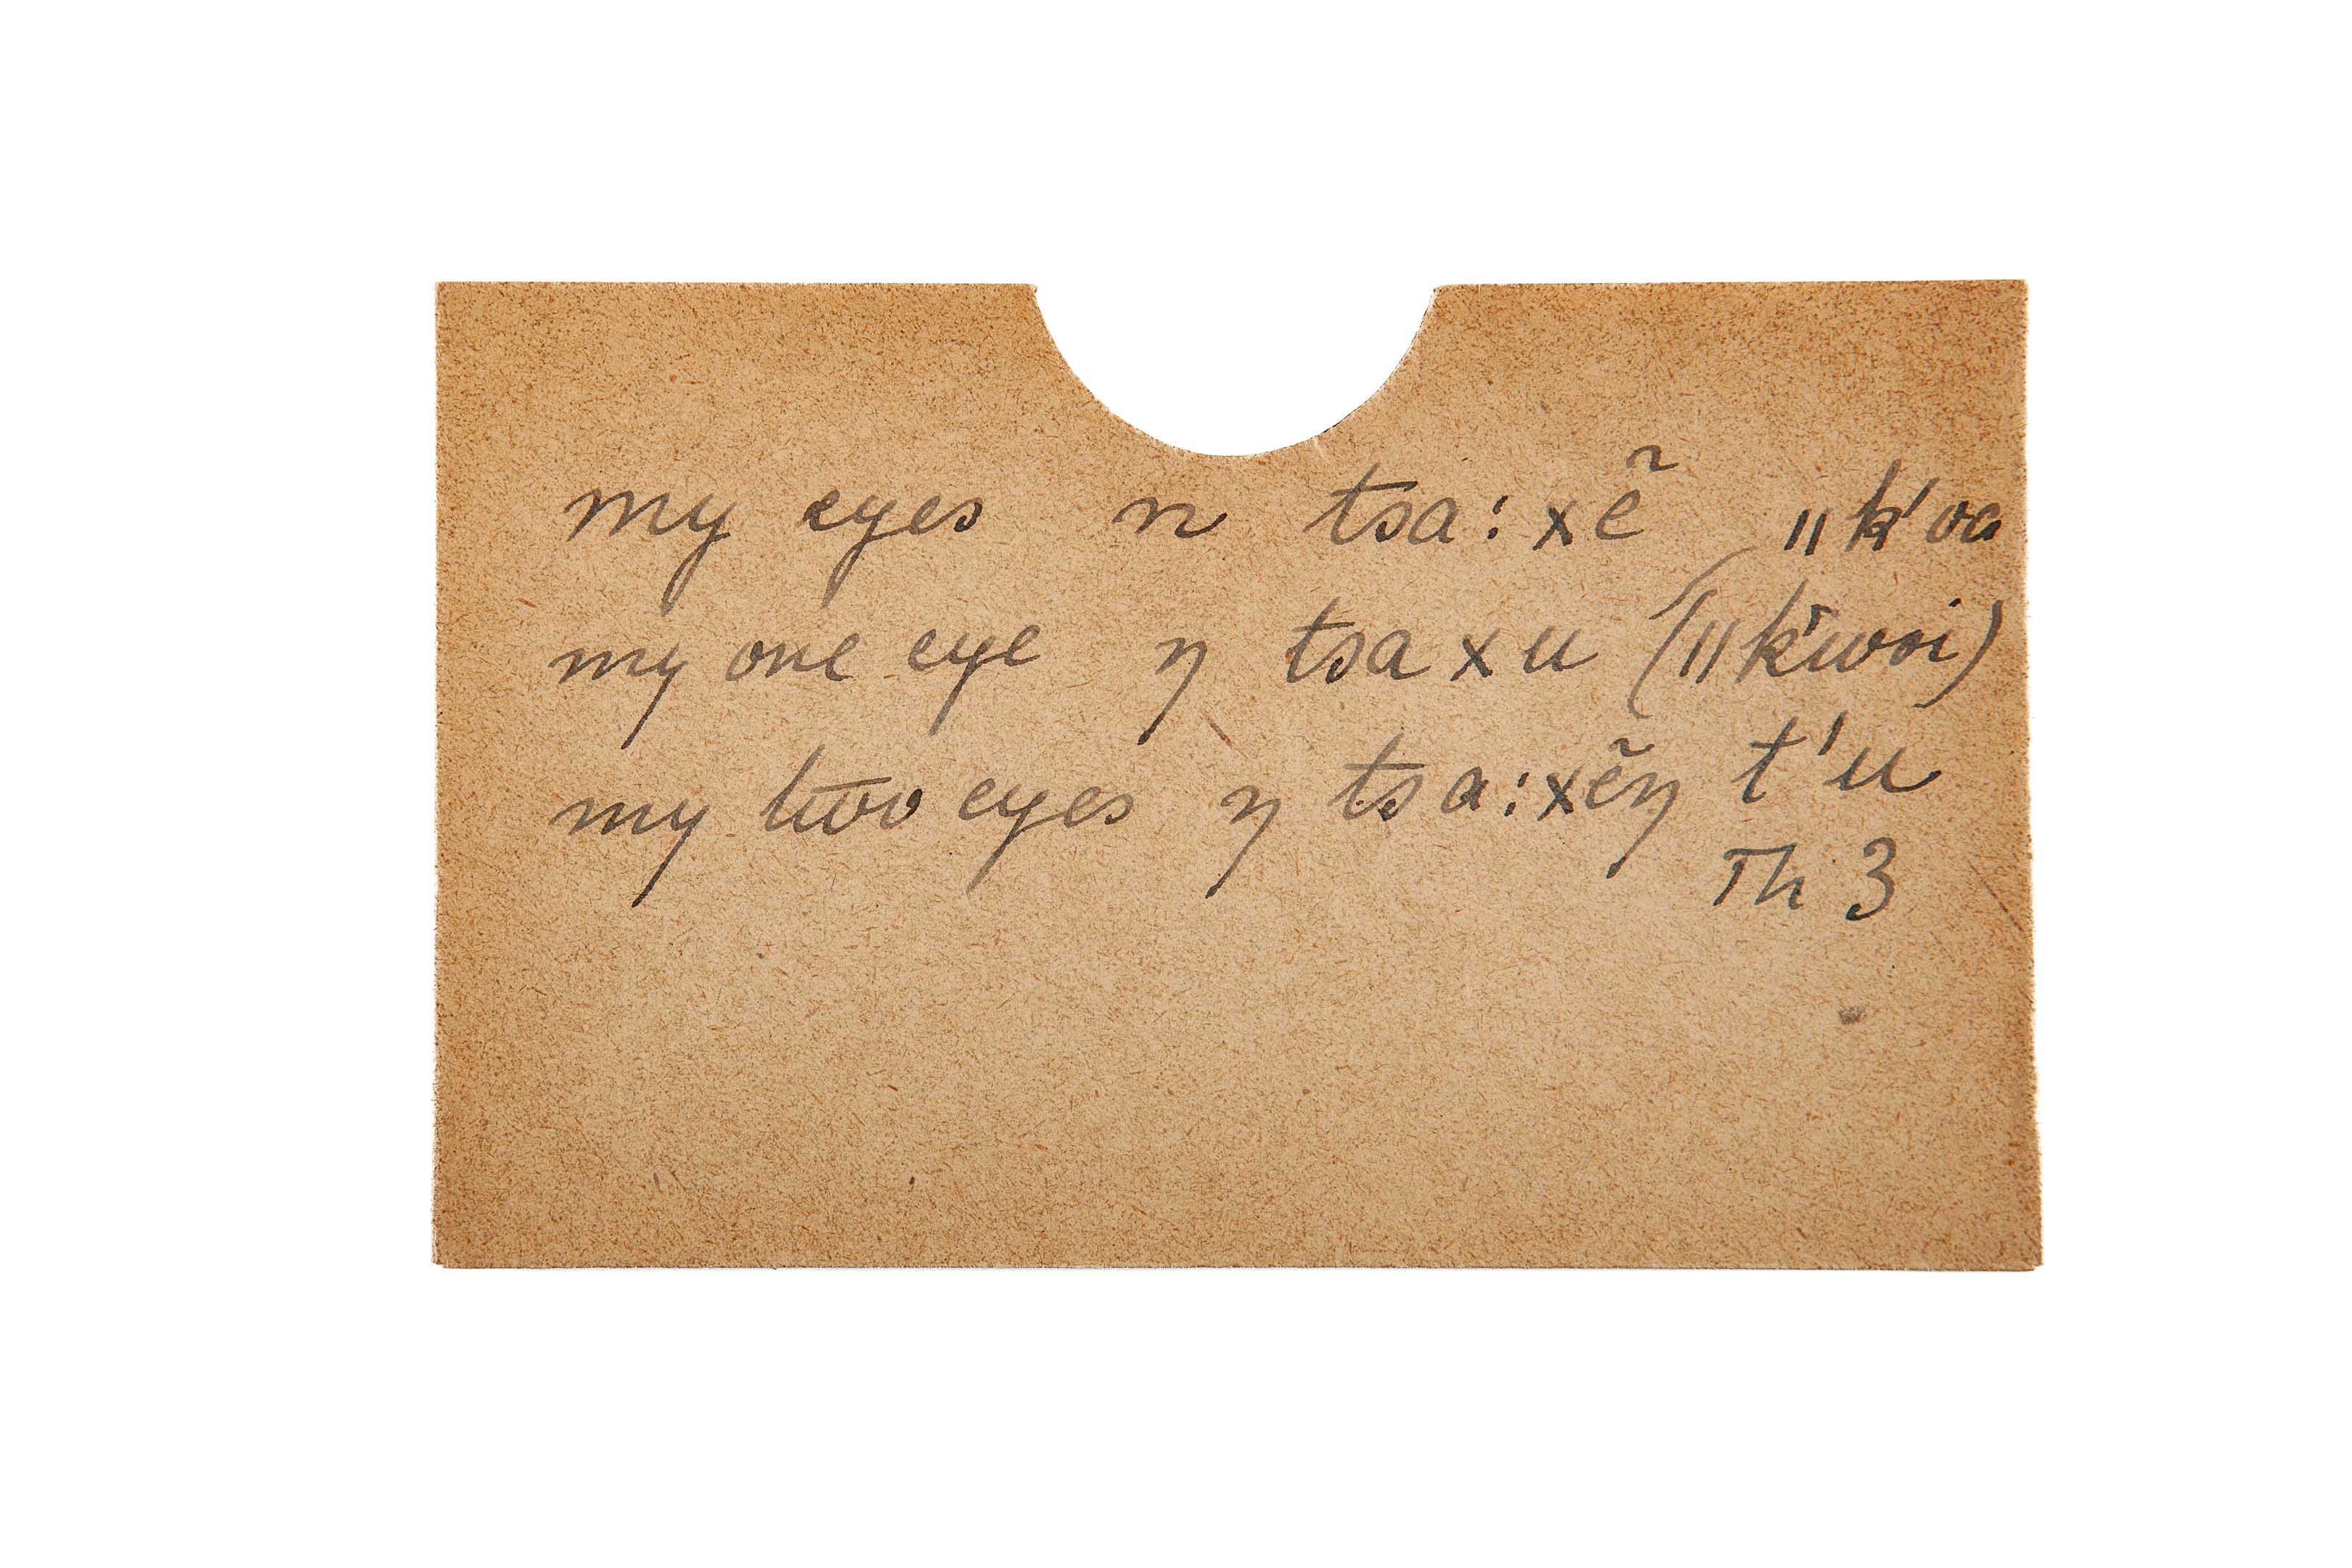 my eyes n tsa:xẽ ||k'oa
my one eye ŋ tsaxu (||k'woi)
my two eyes ŋ tsa:xẽŋ t'u
Th 3